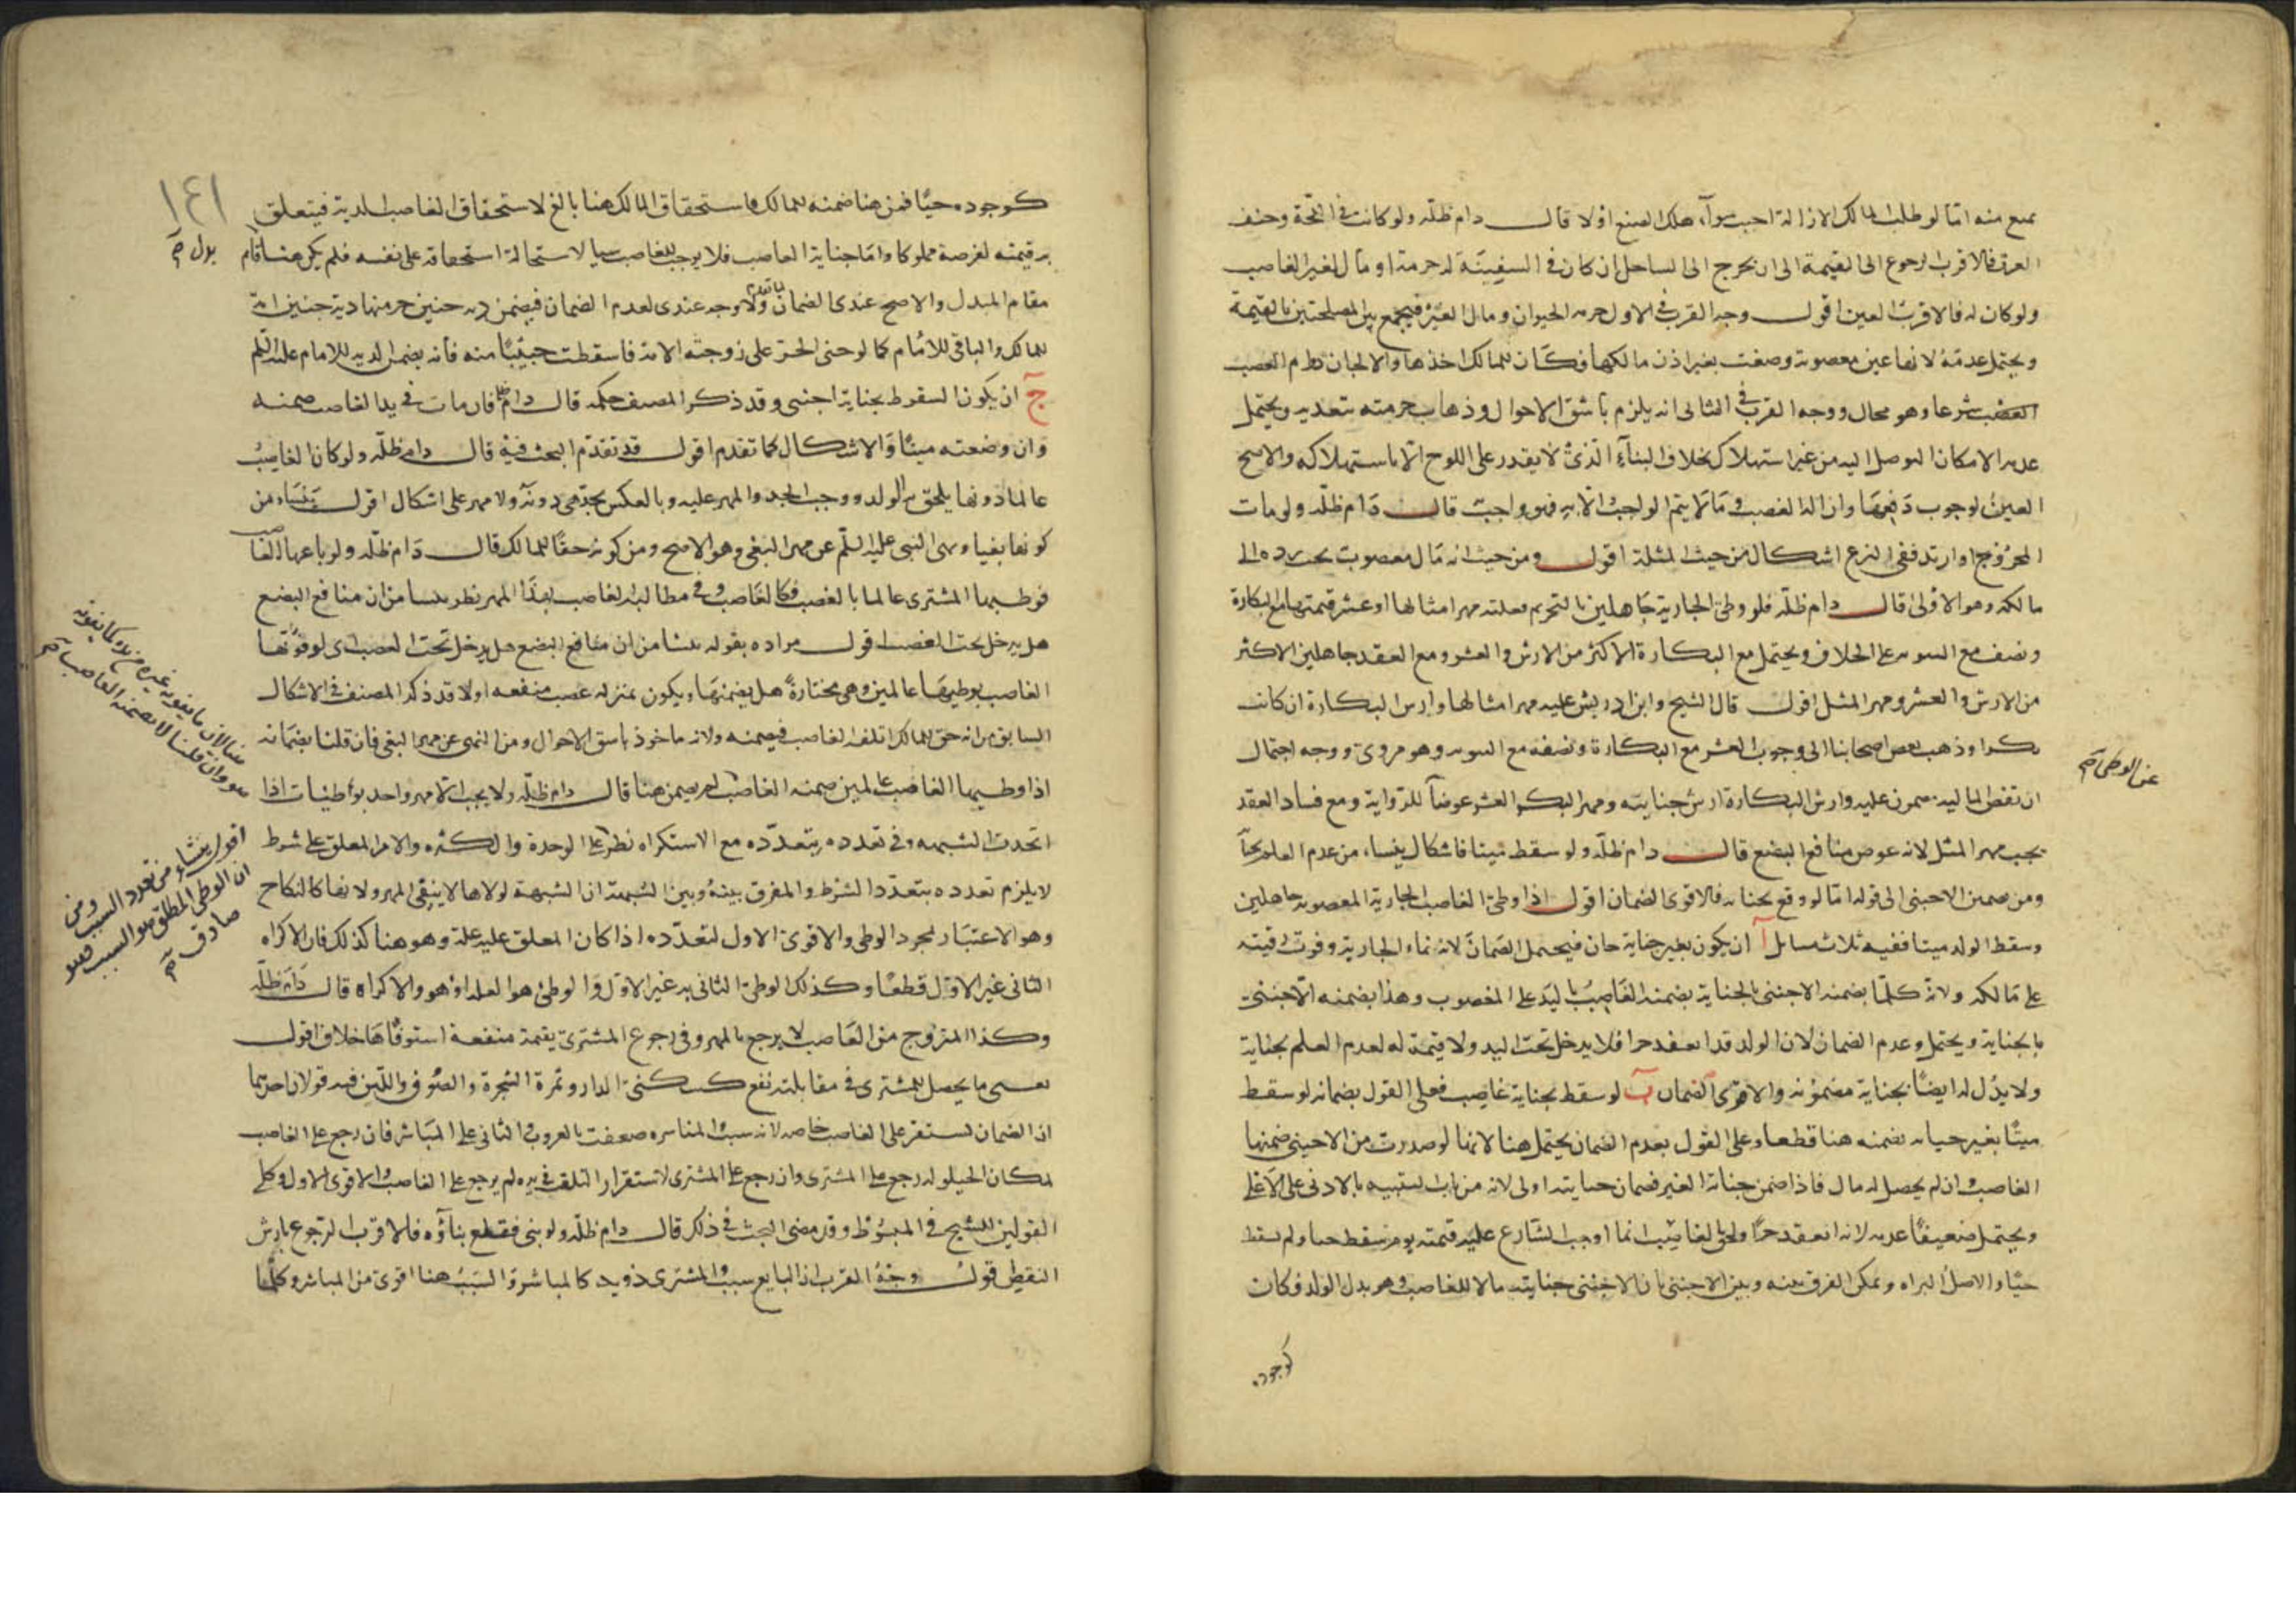 يمنع منه اما لو طلب المالك الازالة اجيب سوآء هلك الصبغ اولا قال دام ظله ولو كانت في اللجة وخيف
الغرق فالاقرب الرجوع الى القيمة الى ان يخرج الى الساحل ان كان في السفينة له حرمة او مال لغير الغاصب
ولو كان له فالاقرب العين اقول وجه القرب في الاول حرمة الحيوان ومال الغير فيجمع بين المصلحتين بالقيمة
ويحتمل عدمه لانها عين مغصوبة وضعت بغير اذن مالكها فكان للمالك اخذها والا لجاز دوام الغصب
الغصب شرعا وهو محال ووجه القرب في الثاني انه يلزم باشق الاحوال وذهاب حرمته بتعديه ويحتمل
عدمه لامكان التوصل اليه من غير استهلاك بخلاف البنآء الذي لا يقدر على اللوح الا باستهلاكه والاصح
العين لوجوب دفعها وازالة الغصب وما لا يتم الواجب الا به فهو واجب قال دام ظله ولو مات
المجروح او ارتد ففي النزع اشكال من حيث المثلة اقول ومن حيث انه مال مغصوب يجب رده الى
مالكه وهو الاولى قال دام ظله فلو وطئ الجارية جاهلين بالتحريم فعليه مهر امثالها او عشر قيمتها مع البكارة
ونصفه مع الثيوبة على الخلاف ويحتمل مع البكارة الاكثر من الارش والعشر ومع العقد جاهلين الاكثر
من الارش والعشر ومهر المثل اقول قال الشيخ وابن ادريس عليه مهر امثالها وارش البكارة ان كانت
بكرا وذهب بعض اصحابنا الى وجوب العشر مع البكارة ونصفه مع الثيوبة وهو مروي ووجه احتمال
ان نقص المالية مضمون عليه وارش البكارة ارش جنايته ومهر البكر العشر عوضا للرواية ومع فساد العقد
عن الوطى صح
يجب مهر المثل لانه عوض منافع البضع قال دام ظله ولو سقط ميتا فاشكال ينشاء من عدم العلم بحيا
ومن تضمين الاجنبي الى قوله اما لو وقع بجناية فالاقوى الضمان اقول اذا وطئ الغاصب الجارية المغصوبة جاهلين
وسقط الولد ميتا ففيه ثلاث مسائل آ ان يكون بغير جناية جان فيحتمل الضمان لانه نماء الجارية وفوت قيمته
على مالكه ولانه كلما يضمنه الاجنبي بالجناية يضمنه الغاصب باليد على المغصوب وهذا يضمنه الاجنبي
بالجناية ويحتمل وعدم الضمان لان الولد قد انعقد حرا فلا يدخل تحت اليد ولا قيمة له لعدم العلم بجناية
ولا بدل له ايضا بجناية مضمونة والاقوى الضمان ب لو سقط بجناية غاصب فعلى القول بضمانه لو سقط
ميتا بغير جناية يضمنه هنا قطعا وعلى القول بعدم الضمان يحتمل هنا لانها لو صدرت من الاجنبي ضمنها
الغاصب وان لم يحصل له مال فاذا ضمن جناية الغير فضمان جنايته اولى لانه من باب التنبيه بالادنى على الاعلى
ويحتمل ضعيفا عدمه لانه انعقد حرا ولحق بالغاصب انما اوجب الشارع عليه قيمته يوم سقط حيا ولم يسقط
حيا والاصل البراه ويمكن الفرق بينه وبين الاجنبي بان الاجنبي جنايته مالا للغاصب وهو بدل الولد فكان
كوجوده
١٤١
كوجوده حيا فمن هنا ضمنه للمالك فاستحقاق المالك هنا بالغ لاستحقاق الغاصب الدية فيتعلق
به قيمته لفرضه مملوكا واما جناية الغاصب فلا يوجب للغاصب شيا لاستحالة استحقاقه على نفسه فلم يكن هنا قام
بدل صح
مقام المبدل والاصح عندي الضمان لما تقدم ولا وجه عندي لعدم الضمان فيضمن دية جنين حر منها دية جنين امة
للمالك والباقي للامام كما لو جنى الحر على زوجته الامة فاسقطت جنينا منه فانه يضمن الدية للامام عليه السلم
ج ان يكون السقوط بجناية اجنبي وقد ذكر المصنف حكمه قال دام ظله فان مات في يد الغاصب ضمنه
وان وضعته ميتا فالاشكال كما تقدم اقول قد تقدم البحث فيه قال دام ظله ولو كان الغاصب
عالما دونها يلحق به الولد ووجب الحد والمهر عليه وبالعكس تحد هي دونه ولا مهر على اشكال اقول ينشاء من
كونها بغيا ونهى النبي عليه السلم عن مهر البغي وهو الاصح ومن كونه حقا للمالك قال دام ظله ولو باعها الغاصب
فوطئها المشتري عالما بالغصب فكالغاصب وفي مطالبة الغاصب بهذا المهر نظر ينشا من ان منافع البضع
هل يدخل تحت الغصب اقول مراده بقوله ينشا من ان منافع البضع هل يدخل تحت الغصب اي لو فوتها
الغاصب بوطيها عالمين وهي مختارة هل يضمنها ويكون بمنزلة غصب منفعة اولا قد ذكر المصنف في الاشكال
السابق من انه حق للمالك اتلفه الغاصب فيضمنه ولانه ماخوذ باشق الاحوال ومن النهى عن مهر البغي فان قلنا بضمانه
اذا وطيها الغاصب عالمين ضمنه الغاصب لم يضمن هنا قال دام ظله ولا يجب الا مهر واحد بوطئات اذا
اتحدت الشبهه وفي تعدده بتعدده مع الاستكراه نظر على الوحدة والكثره والامر المعلق على شرط
اقول ينشاء من تعدد السبب ومن
ان الوطى المطلق هو السبب وهو
صادق صح
لا يلزم تعدده بتعدد الشرط والمفرق بينه وبين الشبهة ان الشبهة لولاها لا ينبقى المهر ولانها كالنكاح
وهو الاعتبار لمجرد الوطى والاقوى الاول لتعدده اذا كان المعلق عليه علة وهو هنا كذلك فان الاكراه
الثاني غير الاول قطعا وكذلك الوطئ الثاني به غير الاول والوطئ هو العلة او هو والاكراه قال دام ظله
وكذا المتزوج من الغاصب لا يرجع بالمهر وفي رجوع المشتري بقيمة منفعة استوفاها خلاف اقول
يعني ما يحصل للمشتري في مقابلته نفع كسكنى الدار وثمرة الشجرة والصوف واللبن فيه قولان احدهما
ان الضمان يستقر على الغاصب خاصة لانه سبب والمباشرة ضعفت بالغرور والثاني على المباشر فان رجع على الغاصب
لمكان الحيلولة رجع على المشتري وان رجع على المشتري لاستقرار التلف في يده لم يرجع على الغاصب والاقوى الاول وكلى
القولين للشيخ في المبسوط وقد مضى البحث في ذلك قال دام ظله ولو بنى فقطع بناؤه فالاقرب الرجوع بارش
النقص اقول وجه القرب ان البايع سبب والمشتري ذو يد كالمباشرة والسبب هنا اقوى من المباشر وكلما